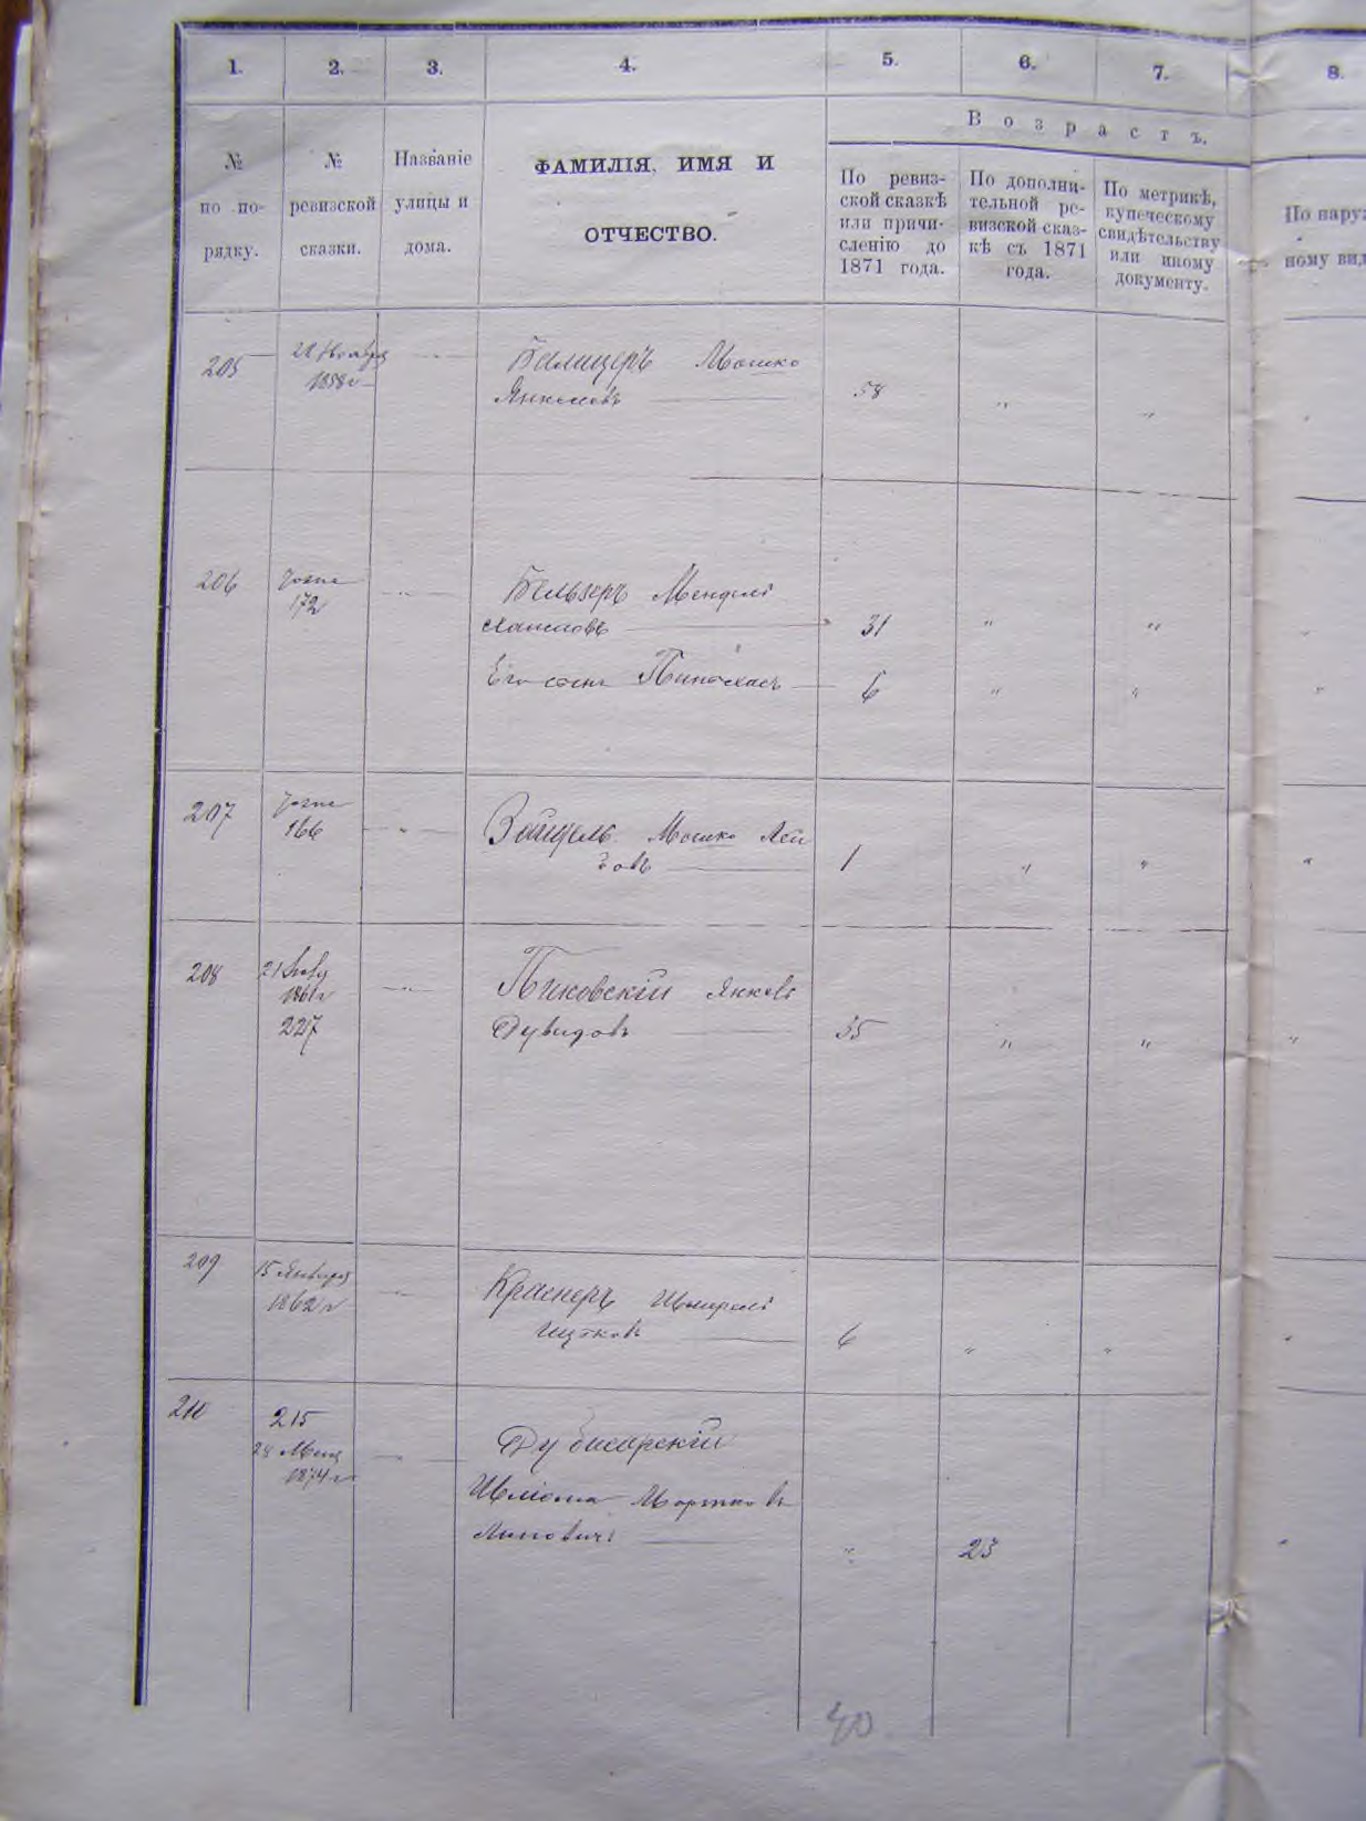 1. 2. 3. 4. 5. 6. 7. 8.
В о з р а с т ъ.
№
по по-
рядку.
№
ревизской
сказки.
Названіе
улицы и
дома.
ФАМИЛІЯ, ИМЯ И
ОТЧЕСТВО.
По ревиз-
ской сказкѣ
или причи-
сленію до
1871 года.
По дополни-
тельной ре-
визской сказ-
кѣ съ 1871
года.
По метрикѣ,
купеческому
свидѣтельству
или иному
документу.
По наруж
ному вид
205
28 Ноября
1858 г
Белицеръ Мошко
Янкелевъ
58 " "
206
172
Бельзеръ Мендель
31 " "
Его сынъ Пинхасъ
6 " "
207
166
Зайдель Мошко Лей
бовъ
1 " "
208
21
1861 г
227
Пиковскій Янкель
Дувидовъ
35 " "
209
15 Января
1862 г
Краснеръ
Ицковъ
6 " "
210
215
28
1874 г
Дубисарскій
Шліома Мортковъ
" 23
40